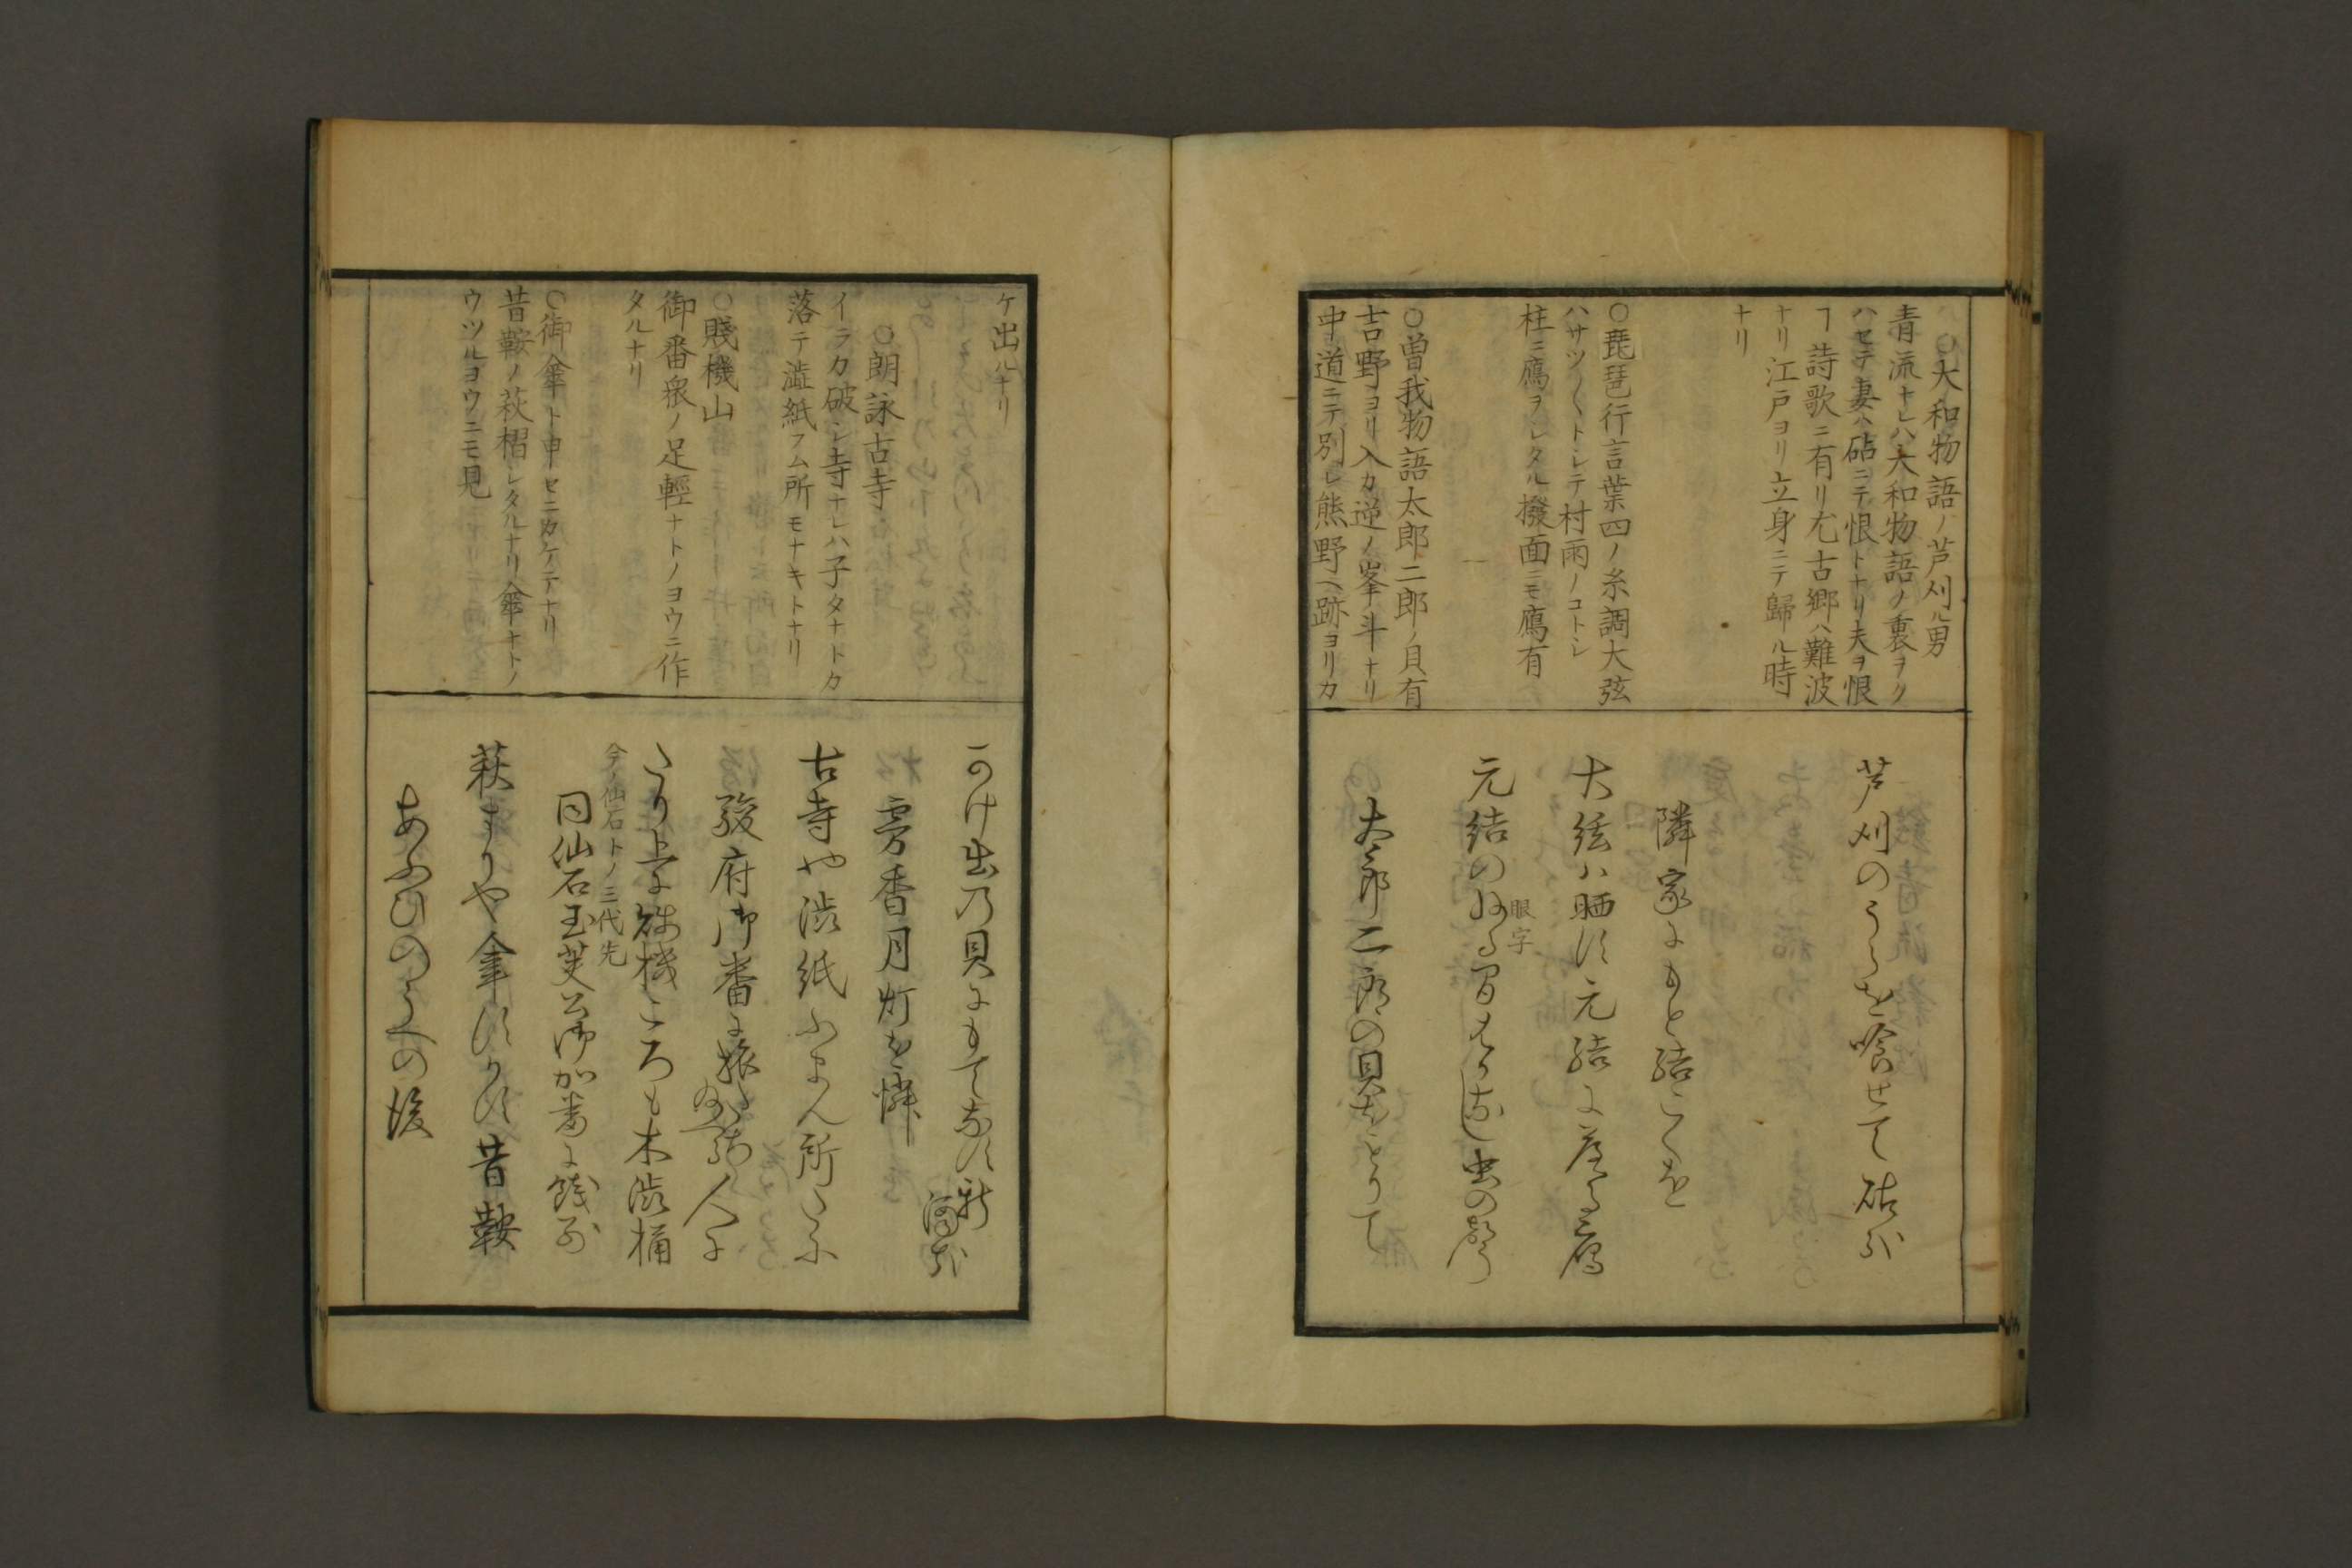 ○大和物語ノ芦刈ル男
青流ナレハ大和物語ノ裏ヲク
ハセテ妻ハ砧ニテ恨トナリ夫ヲ恨
ヿ詩歌ニ有リ尤古郷ハ難波
ナリ江戸ヨリ立身ニテ歸ル時
ナリ
○琵琶行言葉四ノ糸調大弦
ハサツ〱トシテ村雨ノコトシ
柱ニ鴈ヲシタル撥面ニモ鴈有
○曽我物語太郎二郎ノ貝有
吉野ヨリ入カ逆ノ峯ノ斗ナリ
中道ニテ別レ熊野ヘ跡ヨリカ
芦刈のうらを喰せて砧哉
隣家にもと結こくを
大絃ハ晒す元結に落る鴈
眼字
元結のぬる間はかなし虫の聲
太郎二郎の貝をとりて
ケ出ルナリ
○朗詠古寺
イラカ破レ寺ナレハ子タナトカ
落テ澁紙フム所モナキトナリ
○賤機山
御番衆ノ足輕ナトノヨウニ作
タルナリ
○御傘ト申セニカケテナリ
昔鞍ノ萩摺シタルナリ傘ナトノ
ウツルヨウニモ見
かけ出の貝にもてなす新酒哉
雰香月灯を憐
古寺や渋紙ふまん所たに
駿府御番に旅
人に
たり上に賤機ころも木渋桶
今ノ仙石トノ三代先
同仙石玉芙公御加番に餞別
萩すりや傘すかす昔鞍
あふひのうへの後